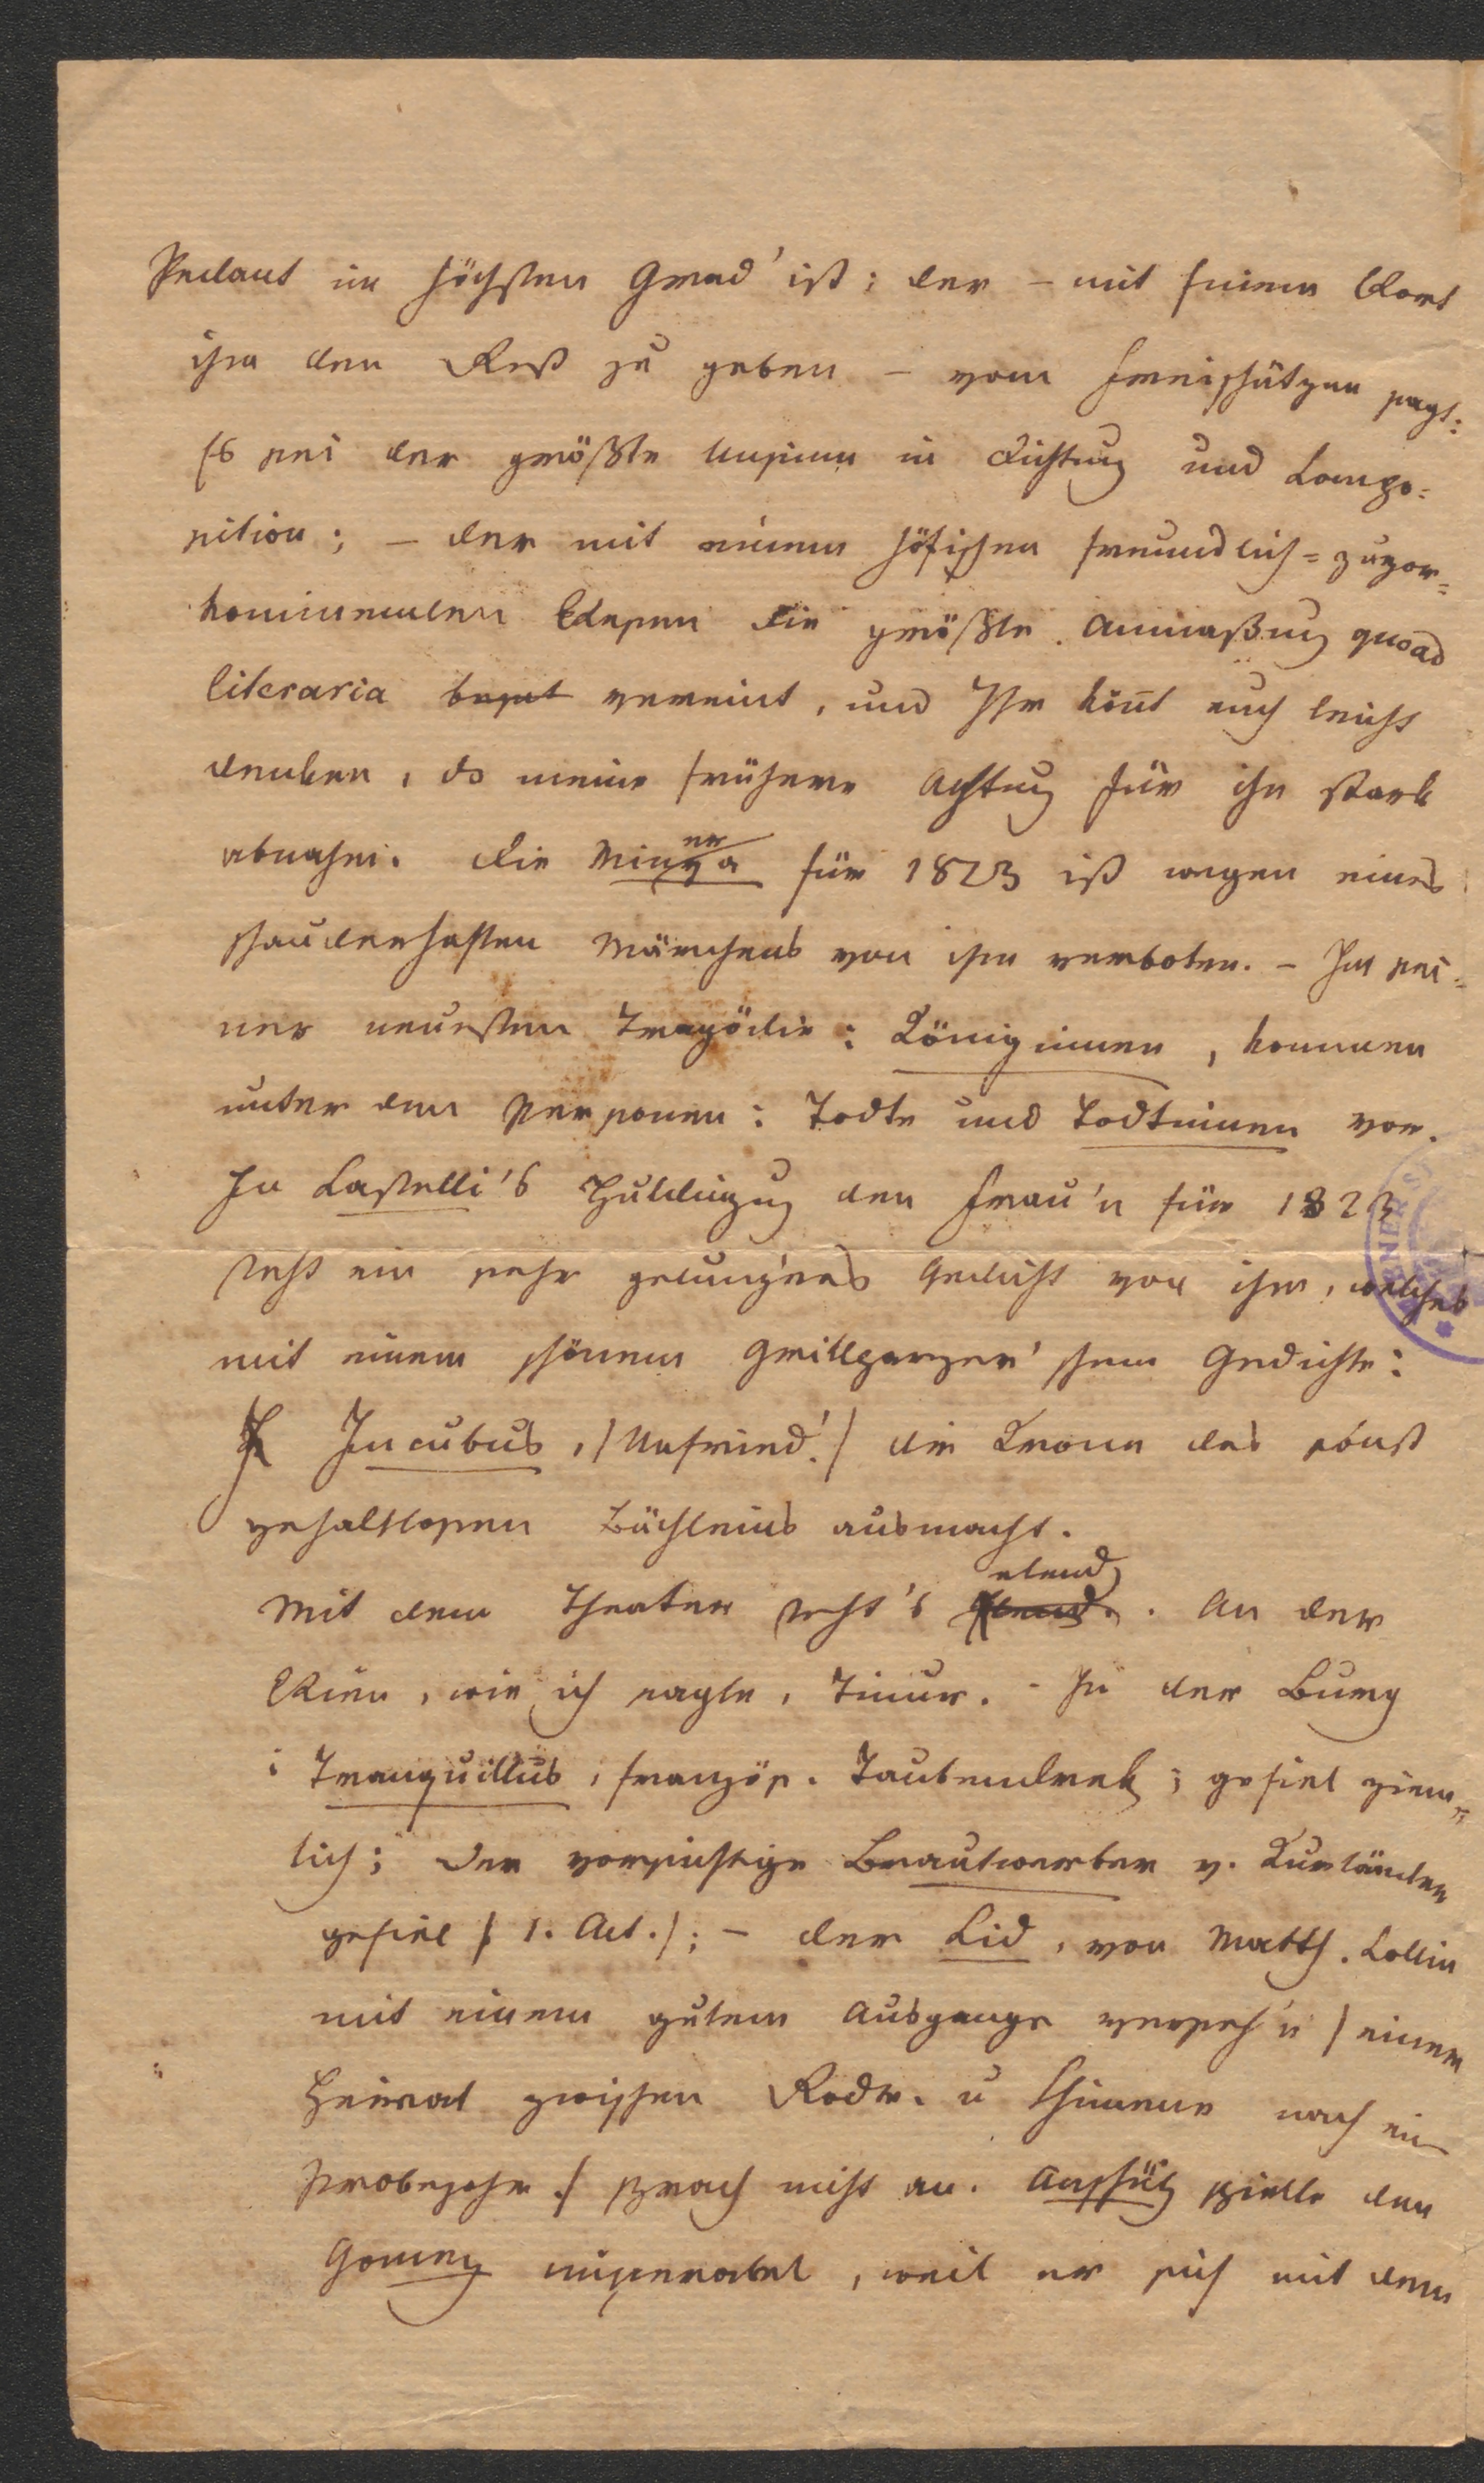 Pedant im höchsten Grad' ist; der – mit einem Wort
ihm den Rest zu geben – vom Freischützen sagt:
Es sei der größte Unsinn in Dichtung und Compo=
sition; – der mit einem höfischen freundlich=zuvor=
kommenden Wesen die größte Anmaßung quoad
literaria besit vereint, und Ihr könt euch leicht
denken, ds meine frühere Achtung für ihn stark
abnahm. Die Minerva für 1823 ist wegen eines
schauderhaften Märchens von ihm verboten. – In sei=
ner neuesten Tragödie: Königinnen, kommen
unter den Personen: Todte und Todtinnen vor.
In Castelli's Huldigung den Frau'n für 1823
steht ein sehr gelung'nes Gedicht von ihm, welches
mit einem schönen Grillparzer'schen Gedichte:
Incubus, /Unfried!/ die Krone des sonst
gehaltlosen Büchleins ausmacht.
Mit dem Theater steht's elend. An der
Wien, wie ich sagte, Timur. – In der Burg
: Tranquillus, französ. Taubendreck; gefiel ziem=
lich; der vorsichtige Brautwerber v. Kurländer
gefiel / 1. Act./; – der Cid, von Matth. Collin
mit einem gutem Ausgange verseh'n / einer
Heirat zwischen Rodr. u Chimene nach ein
Probejahr / sprach nicht an. Anschütz spielte den
Gomez miserabel, weil er sich mit dem